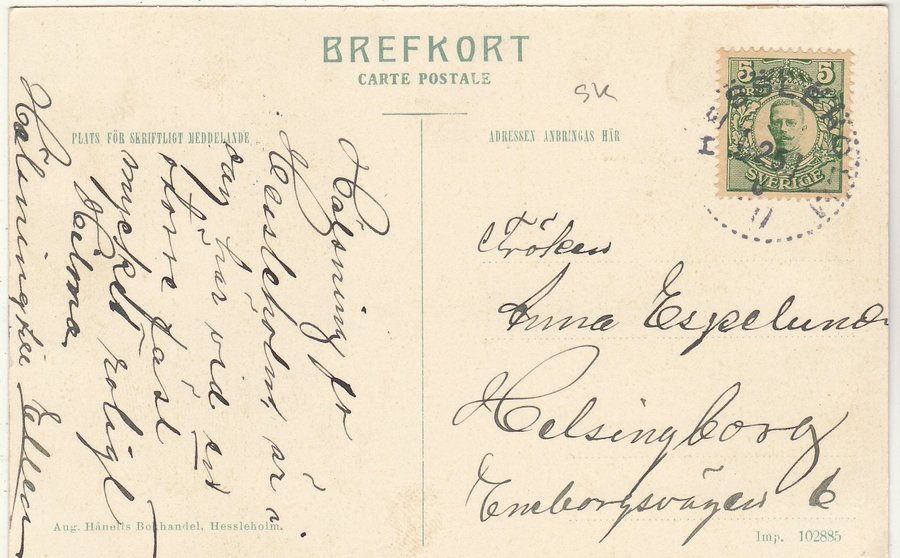 BREFKORT
CARTE POSTALE
SK
PLATS FÖR SKRIFTLIGT MEDDELANDE
ADRESSEN ANBRINGAS HÄR
5 5
SVERIGE
25
Hälsning fr
Hessleholm, är i
dag här vid en
större fast
mycket roligt
Hilma
Hälsningar Ellen
Fröken
Anna Espelund
Helsingborg
Eneborgsvägen 6
Aug. Hånells Bokhandel, Hessleholm.
Imp. 102885